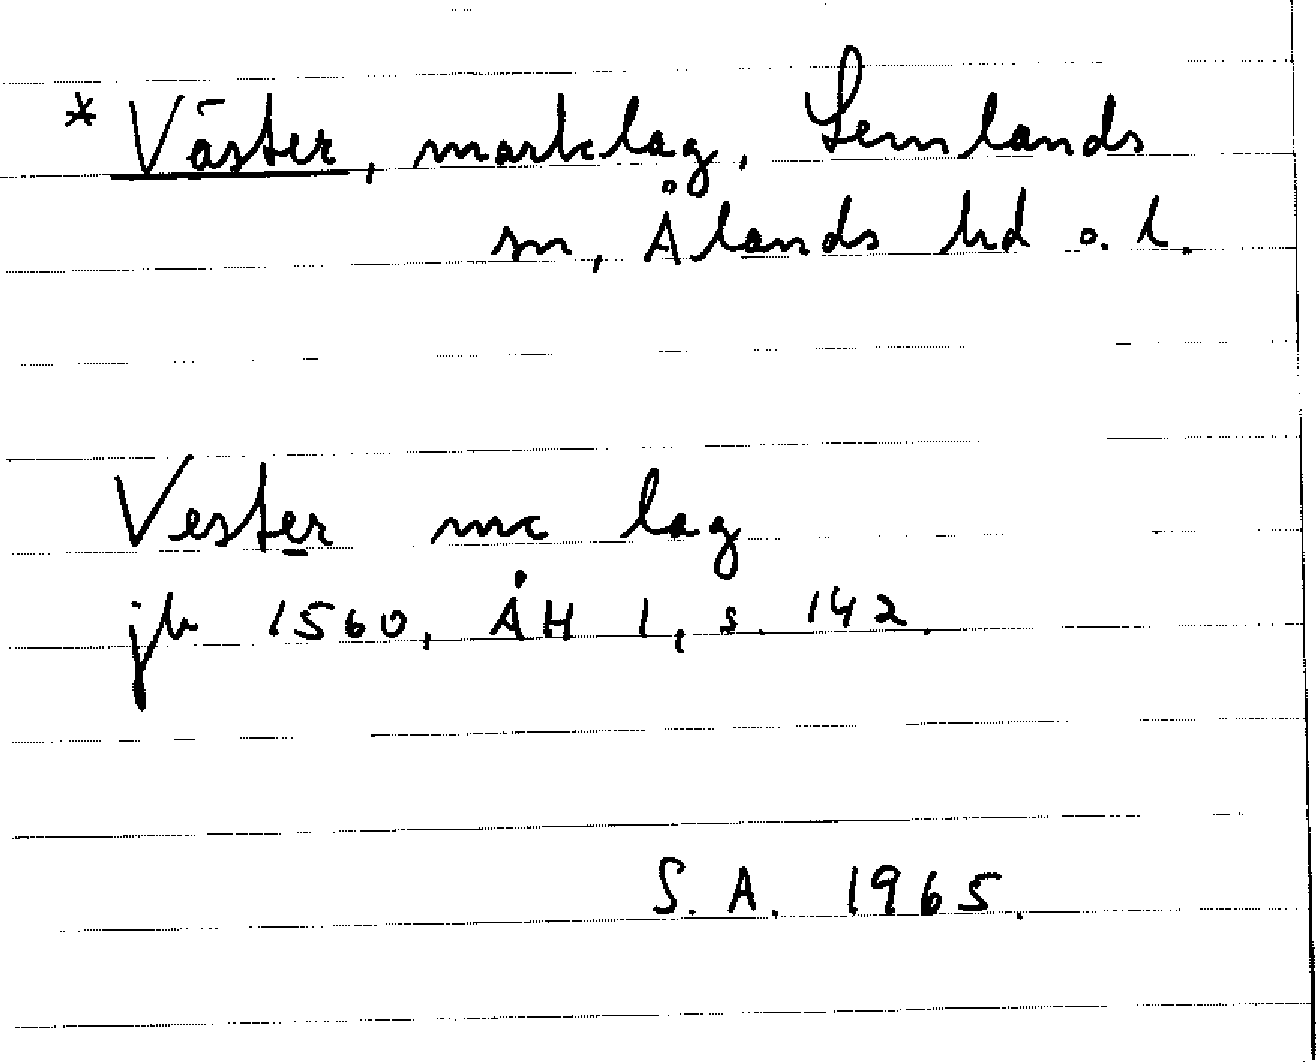 * Väster, marklag, Lemlands
sn, Ålands hd o. l.
Vester mc lag
jb 1560, ÅH 1, s. 142.
S. A. 1965.